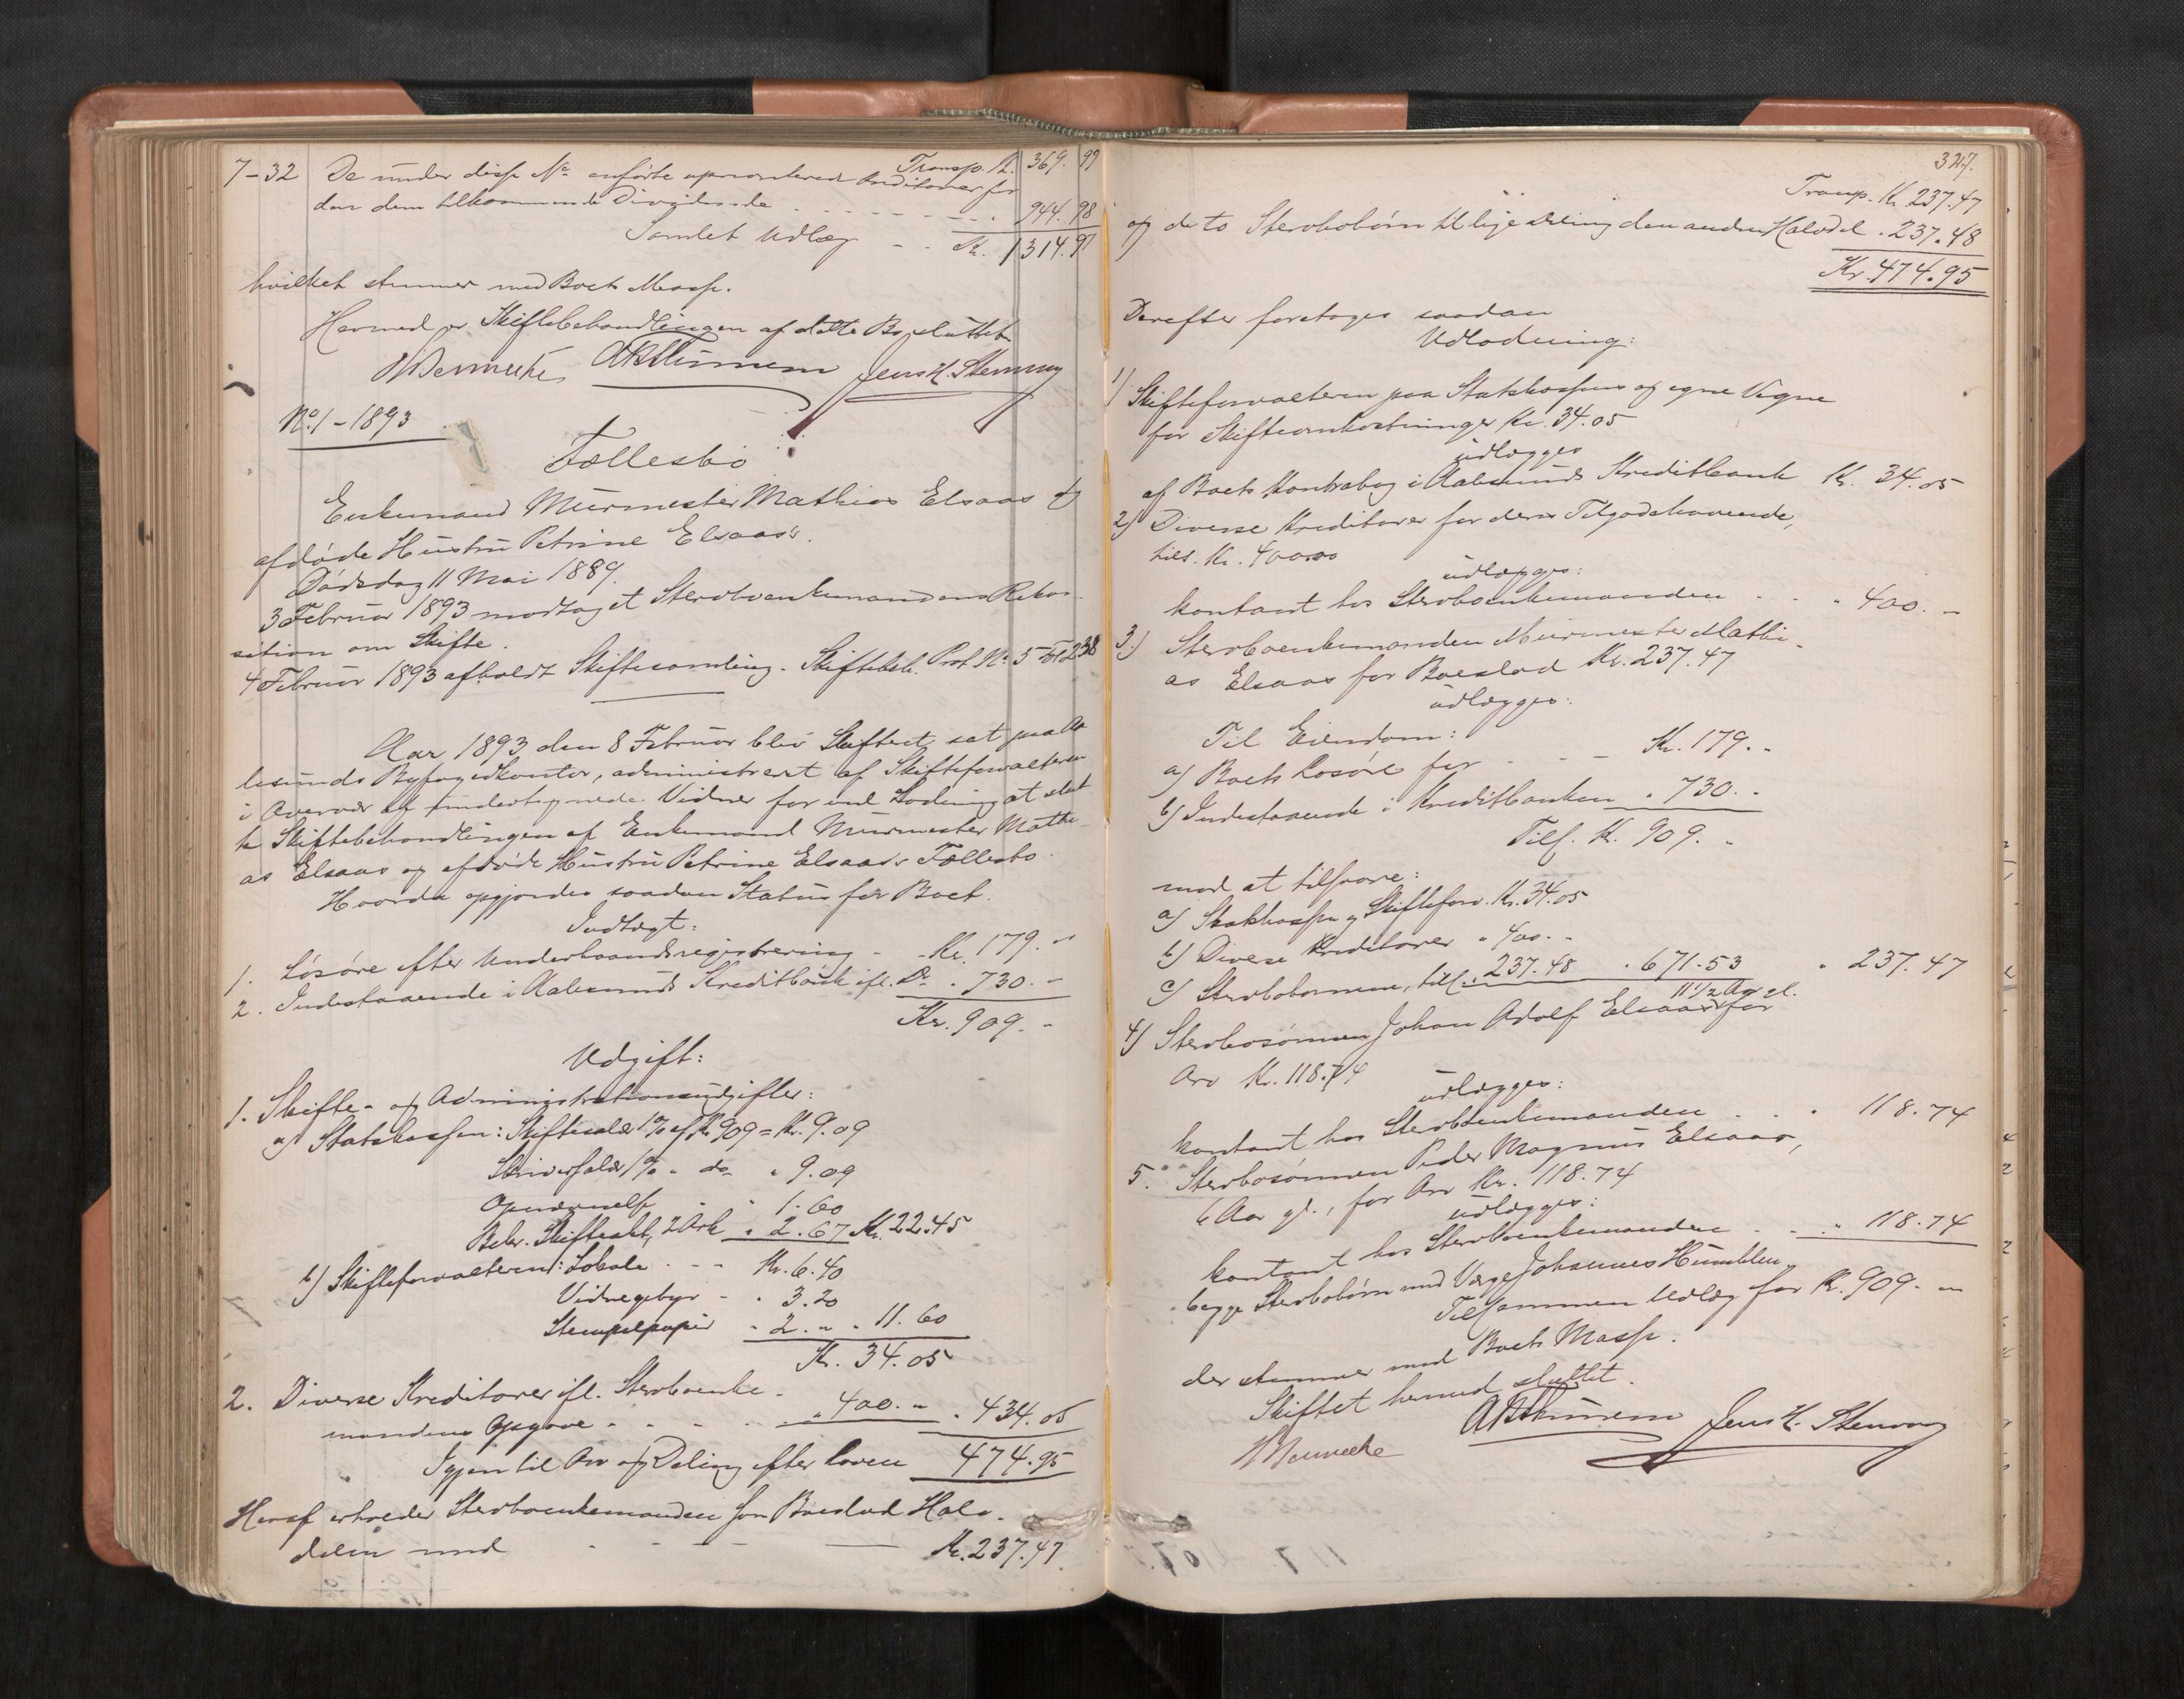 7-32 De under disse No anførte uprioriterede Kreditorer for Transp. Kr. 369.99
den dem tilkommende Dividende . . . . . . 944.98
Samlet Udlæg - - Kr. 1314.97
hvilket stemmer med Boets Masse.
Hermed er Skiftebehandlingen af dette Bo sluttet.
Jens H. Stenvag
No 1 - 1893
Fællesbo
Enkemand Murmester Mathias Elsaas og
afdøde Hustru Petrine Elsaas's.
Dødsdag 11 Mai 1889.
3 Februar 1893 modtaget Stervboenkemandens Rekvi-
sition om Skifte.
4 Februar 1893 afholdt Skiftesamling. Skiftebeh. Prot. No. 5 Fol 238
Aar 1893 den 8 Februar blev Skifteret sat paa Aa-
lesunds Byfogedkontor, administreret af Skifteforvalteren
i Overvær af undertegnede Vidner for ved Lodning at slut-
te Skiftebehandlingen af Enkemand Murmester Mathi-
as Elsaas og afdøde Hustru Petrine Elsaas's Fællesbo.
Hvorda opgjordes saadan Status for Boet.
Indtægt:
1. Løsøre efter Underhaandsregistrering - - Kr. 179. "
2. Indestaaende i Aalesunds Kreditbank ifl. Do " 730. "
Kr. 909. "
Udgift:
1. Skifte- og Administrationsudgifter:
a) Statskassen: Skiftesalær 1% af Kr 909 = Kr. 9.09
Skriversalær 1% " do " 9.09
Opnævnelse " " 1.60
Bekr. Skifteakt, 2 Ark " 2.67 Kr. 22.45
b) Skifteforvalteren: Lokale . - - Kr. 6.40
Vidnegebyr - " 3.20
Stempelpapir " 2. " " 11.60
Kr. 34.05
2. Diverse Kreditorer ifl. Stervboenke-
mandens Opgave - - - - " 400. " " 434.05
Igjen til Arv og Deling efter Loven 474.95
Heraf erholder Stervboenkemanden som Boeslod Halv-
delen med - - - Kr. 237.47
327.
Transp. Kr. 237.47
og de to Stervbobørn til lige Deling den anden Halvdel " 237.48
Kr. 474.95
Derefter foretages saadan
Udlodning:
1) Skifteforvalteren paa Statskassens og egne Vegne
for Skifteomkostninger Kr. 34.05
udlægges
af Boets Kontrabog i Aalesunds Kreditbank Kr. 34.05
2) Diverse Kreditorer for deres Tilgodehavende,
tils. Kr. 400.00
udlægges:
kontant hos Stervboenkemanden . . " 400. "
3.) Stervboenkemanden Murmester Mathi-
as Elsaas for Boeslod Kr. 237.47
udlægges:
Til Eiendom:
a) Boets Løsøre for - - - Kr. 179. "
b) Indestaaende i Kreditbanken " 730. "
Tils. Kr. 909. "
mod at tilsvare:
a) Statskassen og Skifteforv. Kr. 34.05
b) Diverse Kreditorer " 400. "
c) Stervbobørnene, tils. " 237.48 " 671.53 " 237.47
4) Stervbosønnen Johan Adolf Elsaas 11 1/2 Aar gl. for
Arv Kr. 118.74
udlægges:
kontant hos Stervboenkemanden . . . 118.74
5. Stervbosønnen Peder Magnus Elsaas,
6 Aar gl., for Arv Kr. 118.74
udlægges:
kontant hos Stervboenkemanden - - " 118.74
begge Stervbobørn med Værge Johannes Humblen.
Tilsammen Udlæg for Kr. 909. "
der stemmer med Boets Masse.
Skiftet hermed sluttet.
Jens H. Stenvag